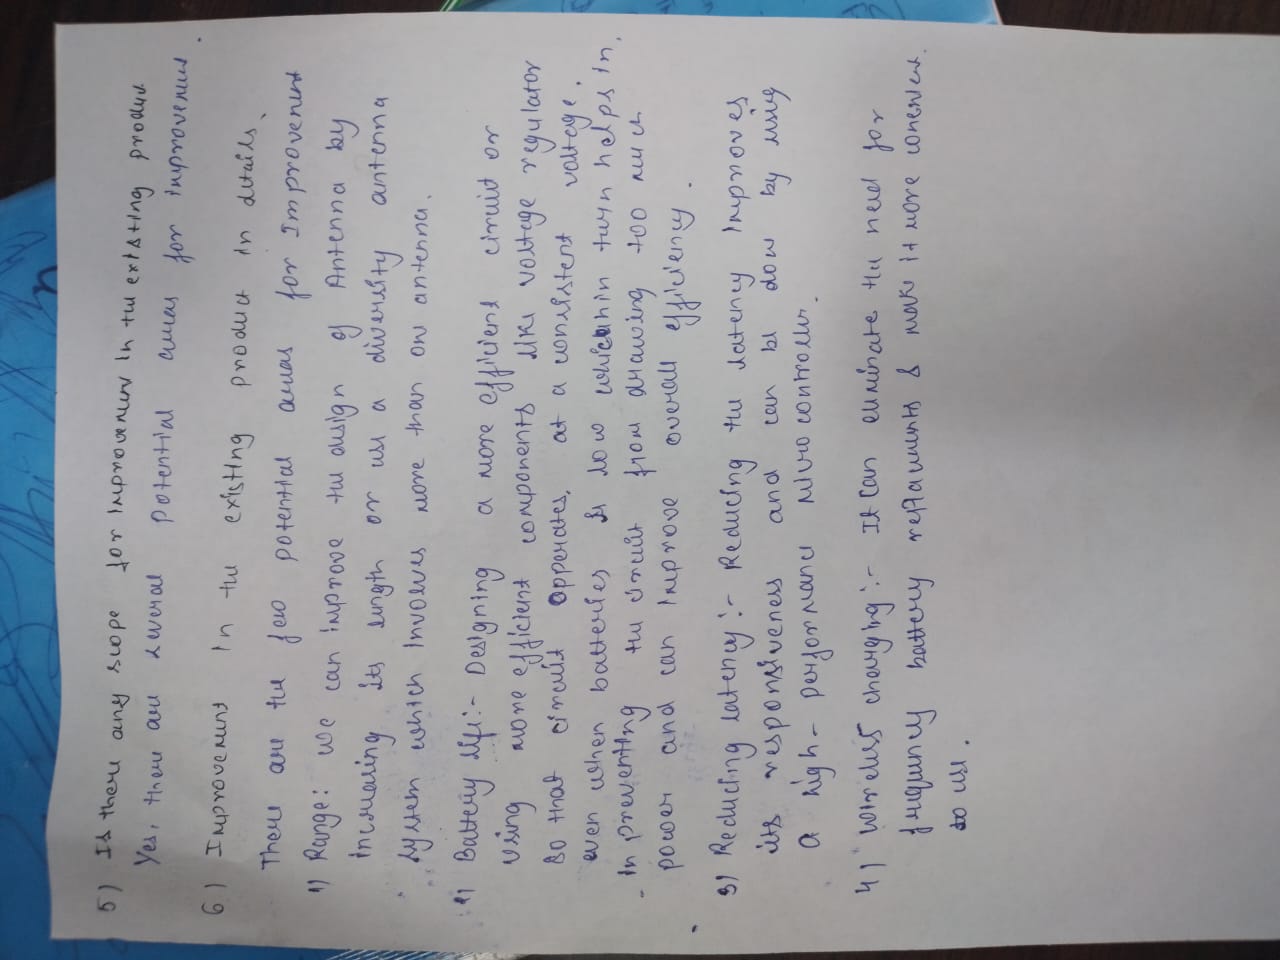 5) Is there any scope for improvement in the existing product.
Yes, there are several potential areas for improvement.
6) Improvement in the existing product in details.
There are the few potential areas for Improvement
1) Range: We can improve the design of Antenna by
increasing its length or use a diversity antenna
system which involves more than one antenna.
2) Battery life:- Designing a more efficient circuit or
using more efficient components like voltage regulator
so that circuit opperates, at a consistent voltage.
even when batteries is low which in turn helps in
in preventing the circuit from drawing too much
power and can improve overall efficiency.
3) Reducing latency:- Reducing the latency improves
its responsiveness and can be done by using
a high-performance micro controller.
4) Wireless charging:- It can eliminate the need for
frequency battery replacements & make it more convenient
to use.